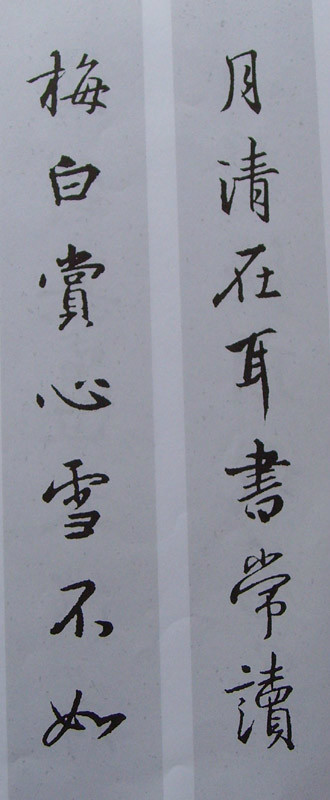 月清在耳書常讀
梅白賞心雪不如